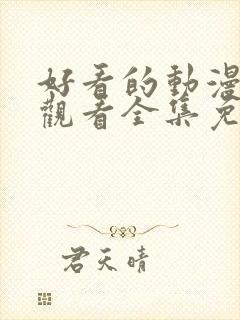 好看的動漫
觀看全集免
君天晴